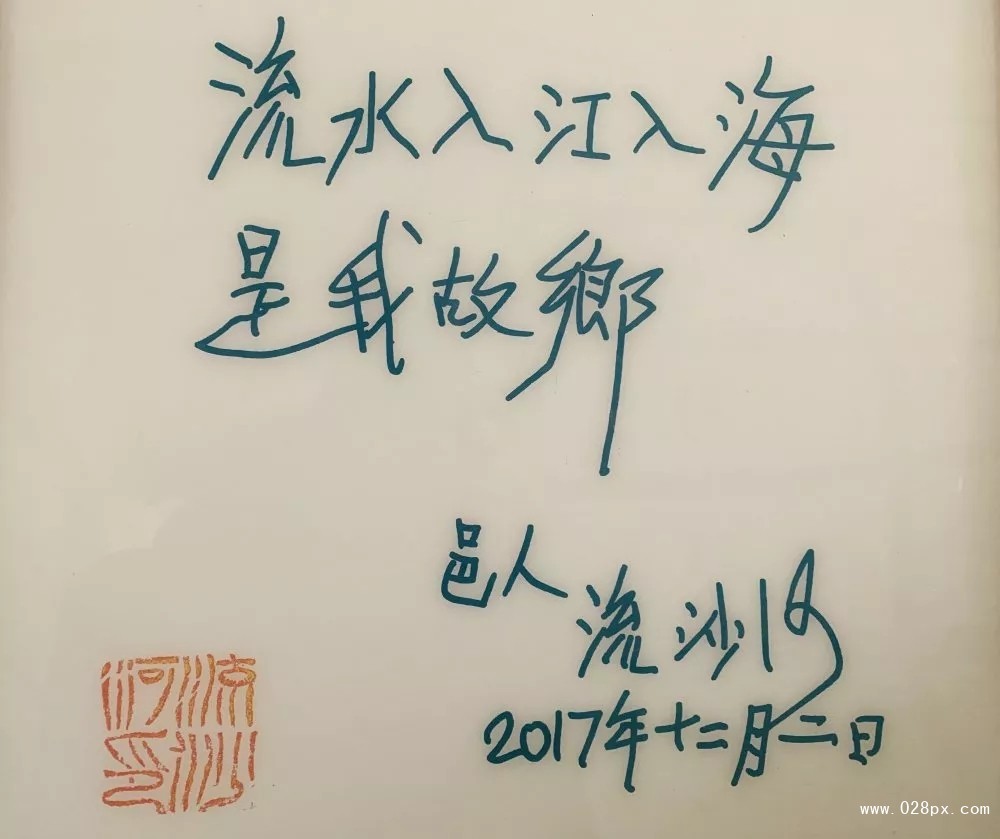 流水入江入海
是我故鄉
邑人 流沙河
2017年十二月二日
流沙河印
www.028px.com